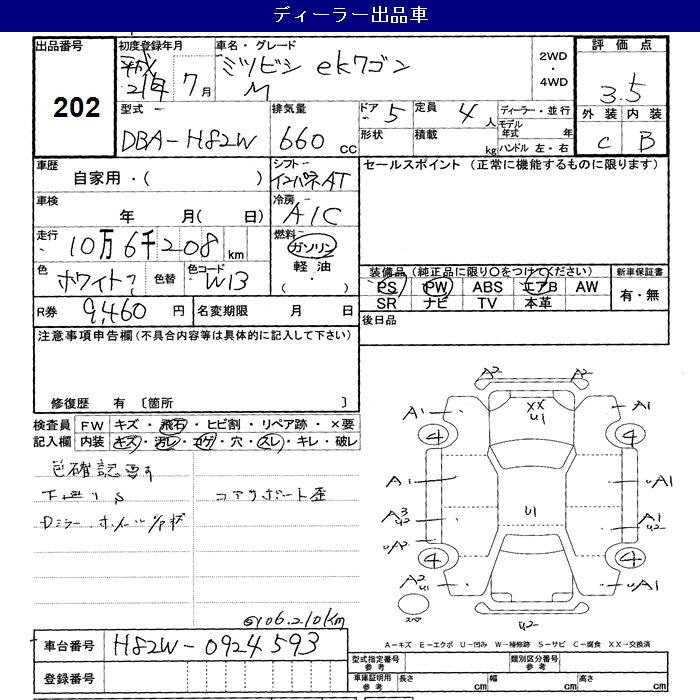 ディーラー出品車
出品番号 初度登録年月 車名・グレード 2WD・4WD 評価点
202
平成21年 7月 ミツビシ ekワゴン M 3.5
外装 内装
C B
型式 排気量 ドア 5 定員 4人 ディーラー・並行
DBA-H82W 660cc 形状 積載 kg モデル年式 年
ハンドル 左・右
車歴 シフト セールスポイント (正常に機能するものに限ります)
自家用・( ) インパネAT
車検 冷房
年 月( 日) A/C
走行 燃料
10万6千208km ガソリン・軽油・( )
色 色替 色コード
ホワイト W13
装備品 (純正品に限り○をつけてください) 新車保証書
PS PW ABS エアB AW 有・無
SR ナビ TV 本革
R券 9,460円 名変期限 月 日 後日品
注意事項申告欄 (不具合内容等は具体的に記入して下さい)
修復歴 有 〔箇所 〕
検査員 FW キズ・飛石・ヒビ割・リペア跡・×要
記入欄 内装 キズ・汚レ・コゲ・穴・スレ・キレ・破レ
色確認要す
下廻りS コアサポート歪
Dミラー、ホイルソリキザ
A2 A2
A1 XX U1 A1
4 4
A1 U1 UA1
A3 U2 A1 U2
UA2
4 4
A2 U1 UA1
スペア U2
106,210km
A-キズ E-エクボ U-凹み W-補修跡 S-サビ C-腐食 XX-交換済
車台番号 H82W-0924593
型式指定番号 参考 類別区分番号 参考
登録番号 車庫証明用 参考 長さ cm 幅 cm 高さ cm